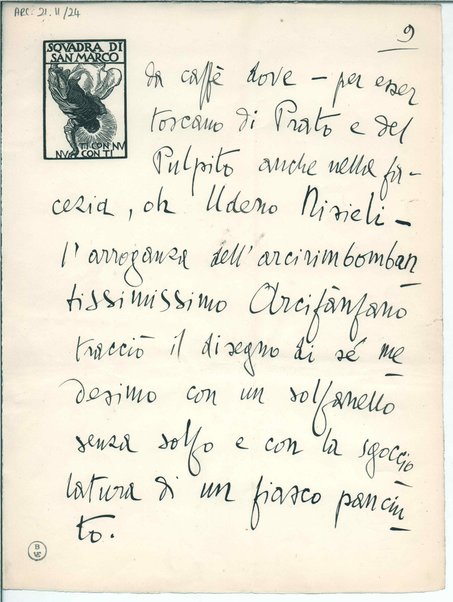 ARC. 21. II/24
9
SQVADRA DI
SAN MARCO
TI CON NV
NV CON TI
da caffè dove – per esser
toscano di Prato e del
Pulpito anche nella fa-
cezia, oh Udeno Nisieli –
l'arroganza dell'arcirimbomban
tissimissimo Arcifànfano
tracciò il disegno di sé me
desimo con un solfanello
senza solfo e con la sgoccio
latura di un fiasco panciu
to.
B